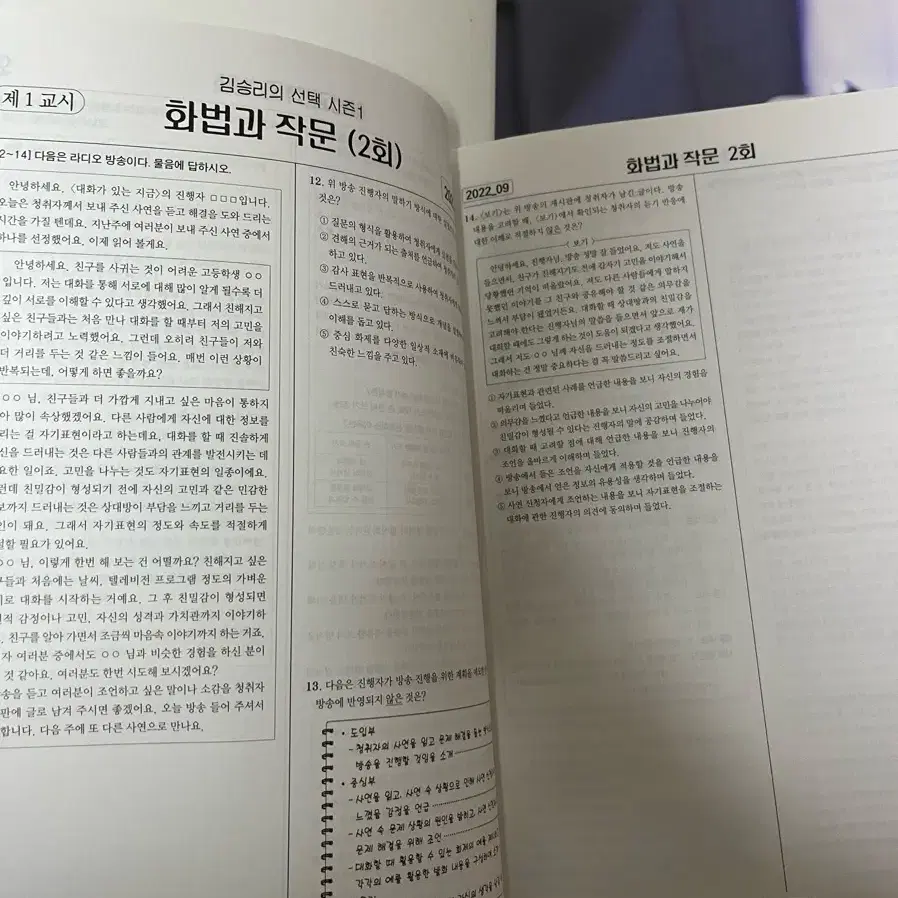 제 1 교시
김승리의 선택 시즌1
화법과 작문 (2회)
2~14] 다음은 라디오 방송이다. 물음에 답하시오.
안녕하세요. 〈대화가 있는 지금〉의 진행자 □□□입니다.
오늘은 청취자께서 보내 주신 사연을 듣고 해결을 도와 드리는
시간을 가질 텐데요. 지난주에 여러분이 보내 주신 사연 중에서
하나를 선정했어요. 이제 읽어 볼게요.
안녕하세요. 친구를 사귀는 것이 어려운 고등학생 ○○
입니다. 저는 대화를 통해 서로에 대해 많이 알게 될수록 더
깊이 서로를 이해할 수 있다고 생각했어요. 그래서 친해지고
싶은 친구들과는 처음 만나 대화를 할 때부터 저의 고민을
이야기하려고 노력했어요. 그런데 오히려 친구들이 저와
더 거리를 두는 것 같은 느낌이 들어요. 매번 이런 상황이
반복되는데, 어떻게 하면 좋을까요?
○○ 님, 친구들과 더 가깝게 지내고 싶은 마음이 통하지
아 많이 속상했겠어요. 다른 사람에게 자신에 대한 정보를
리는 걸 자기표현이라고 하는데요, 대화를 할 때 진솔하게
신을 드러내는 것은 다른 사람들과의 관계를 발전시키는 데
요한 일이죠. 고민을 나누는 것도 자기표현의 일종이에요.
런데 친밀감이 형성되기 전에 자신의 고민과 같은 민감한
보까지 드러내는 것은 상대방이 부담을 느끼고 거리를 두는
인이 돼요. 그래서 자기표현의 정도와 속도를 적절하게
절할 필요가 있어요.
○ 님, 이렇게 한번 해 보는 건 어떨까요? 친해지고 싶은
구들과 처음에는 날씨, 텔레비전 프로그램 정도의 가벼운
로 대화를 시작하는 거예요. 그 후 친밀감이 형성되면
적 감정이나 고민, 자신의 성격과 가치관까지 이야기하
친구를 알아 가면서 조금씩 마음속 이야기까지 하는 거죠.
자 여러분 중에서도 ○○ 님과 비슷한 경험을 하신 분이
것 같아요. 여러분도 한번 시도해 보시겠어요?
송을 듣고 여러분이 조언하고 싶은 말이나 소감을 청취자
판에 글로 남겨 주시면 좋겠어요. 오늘 방송 들어 주셔서
합니다. 다음 주에 또 다른 사연으로 만나요.
12. 위 방송 진행자의 말하기 방식에 대한
것은?
① 질문의 형식을 활용하여 청취자에게
② 견해의 근거가 되는 출처를 언급하여
하고 있다.
③ 감사 표현을 반복적으로 사용하여
드러내고 있다.
④ 스스로 묻고 답하는 방식으로 개념을
이해를 돕고 있다.
⑤ 중심 화제를 다양한 일상적 소재에
친숙한 느낌을 주고 있다.
13. 다음은 진행자가 방송 진행을 위한 계획을
방송에 반영되지 않은 것은?
• 도입부
- 청취자의 사연을 읽고 문제 해결을 돕는
방송을 진행할 것임을 소개
• 중심부
- 사연을 읽고, 사연 속 상황으로 인해 사연
느꼈을 감정을 언급
- 사연 속 문제 상황의 원인을 밝히고, 사연
문제 해결을 위해 조언
- 대화할 때 활용할 수 있는 화제의 예를
각각의 예를 활용한 발화 내용을
화법과 작문 2회
2022_09
14. 〈보기〉는 위 방송의 게시판에 청취자가 남긴 글이다. 방송
내용을 고려할 때, 〈보기〉에서 확인되는 청취자의 듣기 반응에
대한 이해로 적절하지 않은 것은?
〈보 기〉
안녕하세요. 진행자님, 방송 정말 잘 들었어요. 저도 사연을
들으면서, 친구가 친해지기도 전에 갑자기 고민을 이야기해서
당황했던 기억이 떠올랐어요. 저도 다른 사람들에게 말하지
못했던 이야기를 그 친구와 공유해야 할 것 같은 의무감을
느껴서 부담이 됐었거든요. 대화할 때 상대방과의 친밀감을
고려해야 한다는 진행자님의 말씀을 들으면서 앞으로 제가
대화할 때에도 그렇게 하는 것이 도움이 되겠다고 생각했어요.
그래서 저도 ○○ 님께 자신을 드러내는 정도를 조절하면서
대화하는 건 정말 중요하다는 걸 꼭 말씀드리고 싶어요.
① 자기표현과 관련된 사례를 언급한 내용을 보니 자신의 경험을
떠올리며 들었다.
② 의무감을 느꼈다고 언급한 내용을 보니 자신의 고민을 나누어야
친밀감이 형성될 수 있다는 진행자의 말에 공감하며 들었다.
③ 대화할 때 고려할 점에 대해 언급한 내용을 보니 진행자의
조언을 올바르게 이해하며 들었다.
④ 방송에서 들은 조언을 자신에게 적용할 것을 언급한 내용을
보니 방송에서 얻은 정보의 유용성을 생각하며 들었다.
⑤ 사연 신청자에게 조언하는 내용을 보니 자기표현을 조절하는
대화에 관한 진행자의 의견에 동의하며 들었다.